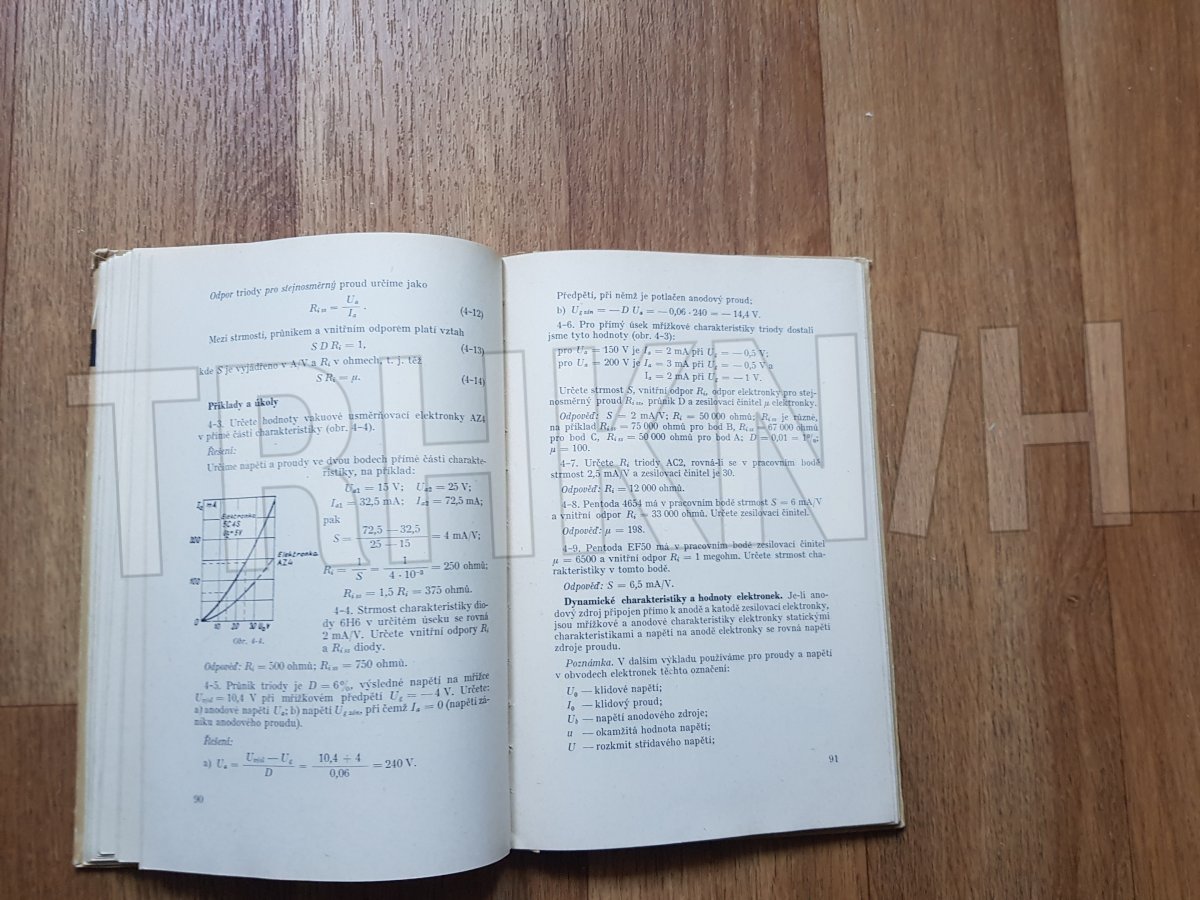 Odpor triody pro stejnosměrný proud určíme jako
R_{i ss} = U_a / I_a . (4-12)
Mezi strmostí, průnikem a vnitřním odporem platí vztah
S D R_i = 1, (4-13)
kde S je vyjádřeno v A/V a R_i v ohmech, t. j. též
S R_i = μ. (4-14)
Příklady a úkoly
4-3. Určete hodnoty vakuové usměrňovací elektronky AZ4
v přímé části charakteristiky (obr. 4-4).
Řešení:
Určíme napětí a proudy ve dvou bodech přímé části charakte-
ristiky, na příklad:
U_{a1} = 15 V; U_{a2} = 25 V;
I_{a1} = 32,5 mA; I_{a2} = 72,5 mA;
pak
S = (72,5 — 32,5) / (25 — 15) = 4 mA/V;
R_i = 1 / S = 1 / (4 · 10⁻³) = 250 ohmů;
R_{i ss} = 1,5 R_i = 375 ohmů.
I_a mA
Elektronka
5C4S
Elektronka
AZ4
10 20 30 U_a V
Obr. 4-4.
4-4. Strmost charakteristiky dio-
dy 6H6 v určitém úseku se rovná
2 mA/V. Určete vnitřní odpory R_i
a R_{i ss} diody.
Odpověď: R_i = 500 ohmů; R_{i ss} = 750 ohmů.
4-5. Průnik triody je D = 6%, výsledné napětí na mřížce
U_{výsl} = 10,4 V při mřížkovém předpětí U_g = — 4 V. Určete:
a) anodové napětí U_a; b) napětí U_{g zán}, při čemž I_a = 0 (napětí zá-
niku anodového proudu).
Řešení:
a) U_a = (U_{výsl} — U_g) / D = (10,4 + 4) / 0,06 = 240 V.
90
Předpětí, při němž je potlačen anodový proud;
b) U_{g zán} = — D U_a = — 0,06 · 240 = — 14,4 V.
4-6. Pro přímý úsek mřížkové charakteristiky triody dostali
jsme tyto hodnoty (obr. 4-3):
pro U_a = 150 V je I_a = 2 mA při U_g = — 0,5 V;
pro U_a = 200 V je I_a = 3 mA při U_g = — 0,5 V a
I_a = 2 mA při U_g = — 1 V.
Určete strmost S, vnitřní odpor R_i, odpor elektronky pro stej-
nosměrný proud R_{i ss}, průnik D a zesilovací činitel μ elektronky.
Odpověď: S = 2 mA/V; R_i = 50 000 ohmů; R_{i ss} je různé,
na příklad R_{i ss} = 75 000 ohmů pro bod B, R_{i ss} = 67 000 ohmů
pro bod C, R_{i ss} = 50 000 ohmů pro bod A; D = 0,01 = 1%;
μ = 100.
4-7. Určete R_i triody AC2, rovná-li se v pracovním bodě
strmost 2,5 mA/V a zesilovací činitel je 30.
Odpověď: R_i = 12 000 ohmů.
4-8. Pentoda 4654 má v pracovním bodě strmost S = 6 mA/V
a vnitřní odpor R_i = 33 000 ohmů. Určete zesilovací činitel.
Odpověď: μ = 198.
4-9. Pentoda EF50 má v pracovním bodě zesilovací činitel
μ = 6500 a vnitřní odpor R_i = 1 megohm. Určete strmost cha-
rakteristiky v tomto bodě.
Odpověď: S = 6,5 mA/V.
Dynamické charakteristiky a hodnoty elektronek. Je-li ano-
dový zdroj připojen přímo k anodě a katodě zesilovací elektronky,
jsou mřížkové a anodové charakteristiky elektronky statickými
charakteristikami a napětí na anodě elektronky se rovná napětí
zdroje proudu.
Poznámka. V dalším výkladu používáme pro proudy a napětí
v obvodech elektronek těchto označení:
U_0 — klidové napětí;
I_0 — klidový proud;
U_b — napětí anodového zdroje;
u — okamžitá hodnota napětí;
U — rozkmit střídavého napětí;
91
TRHKNIH